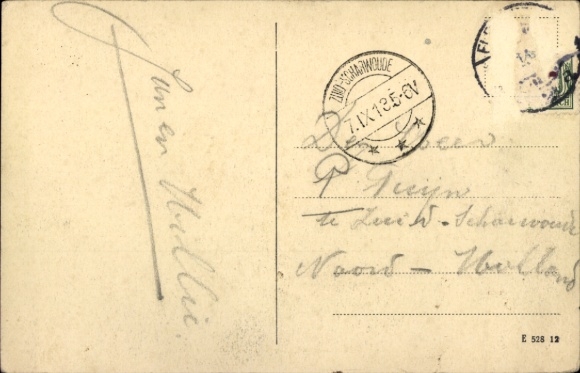 Jan en Willie
ZUID-SCHARWOUDE
7.IX.13.5-6V
Den Heer
P Kuijn
te Zuid-Scharwoude
Noord-Holland
E 528 12